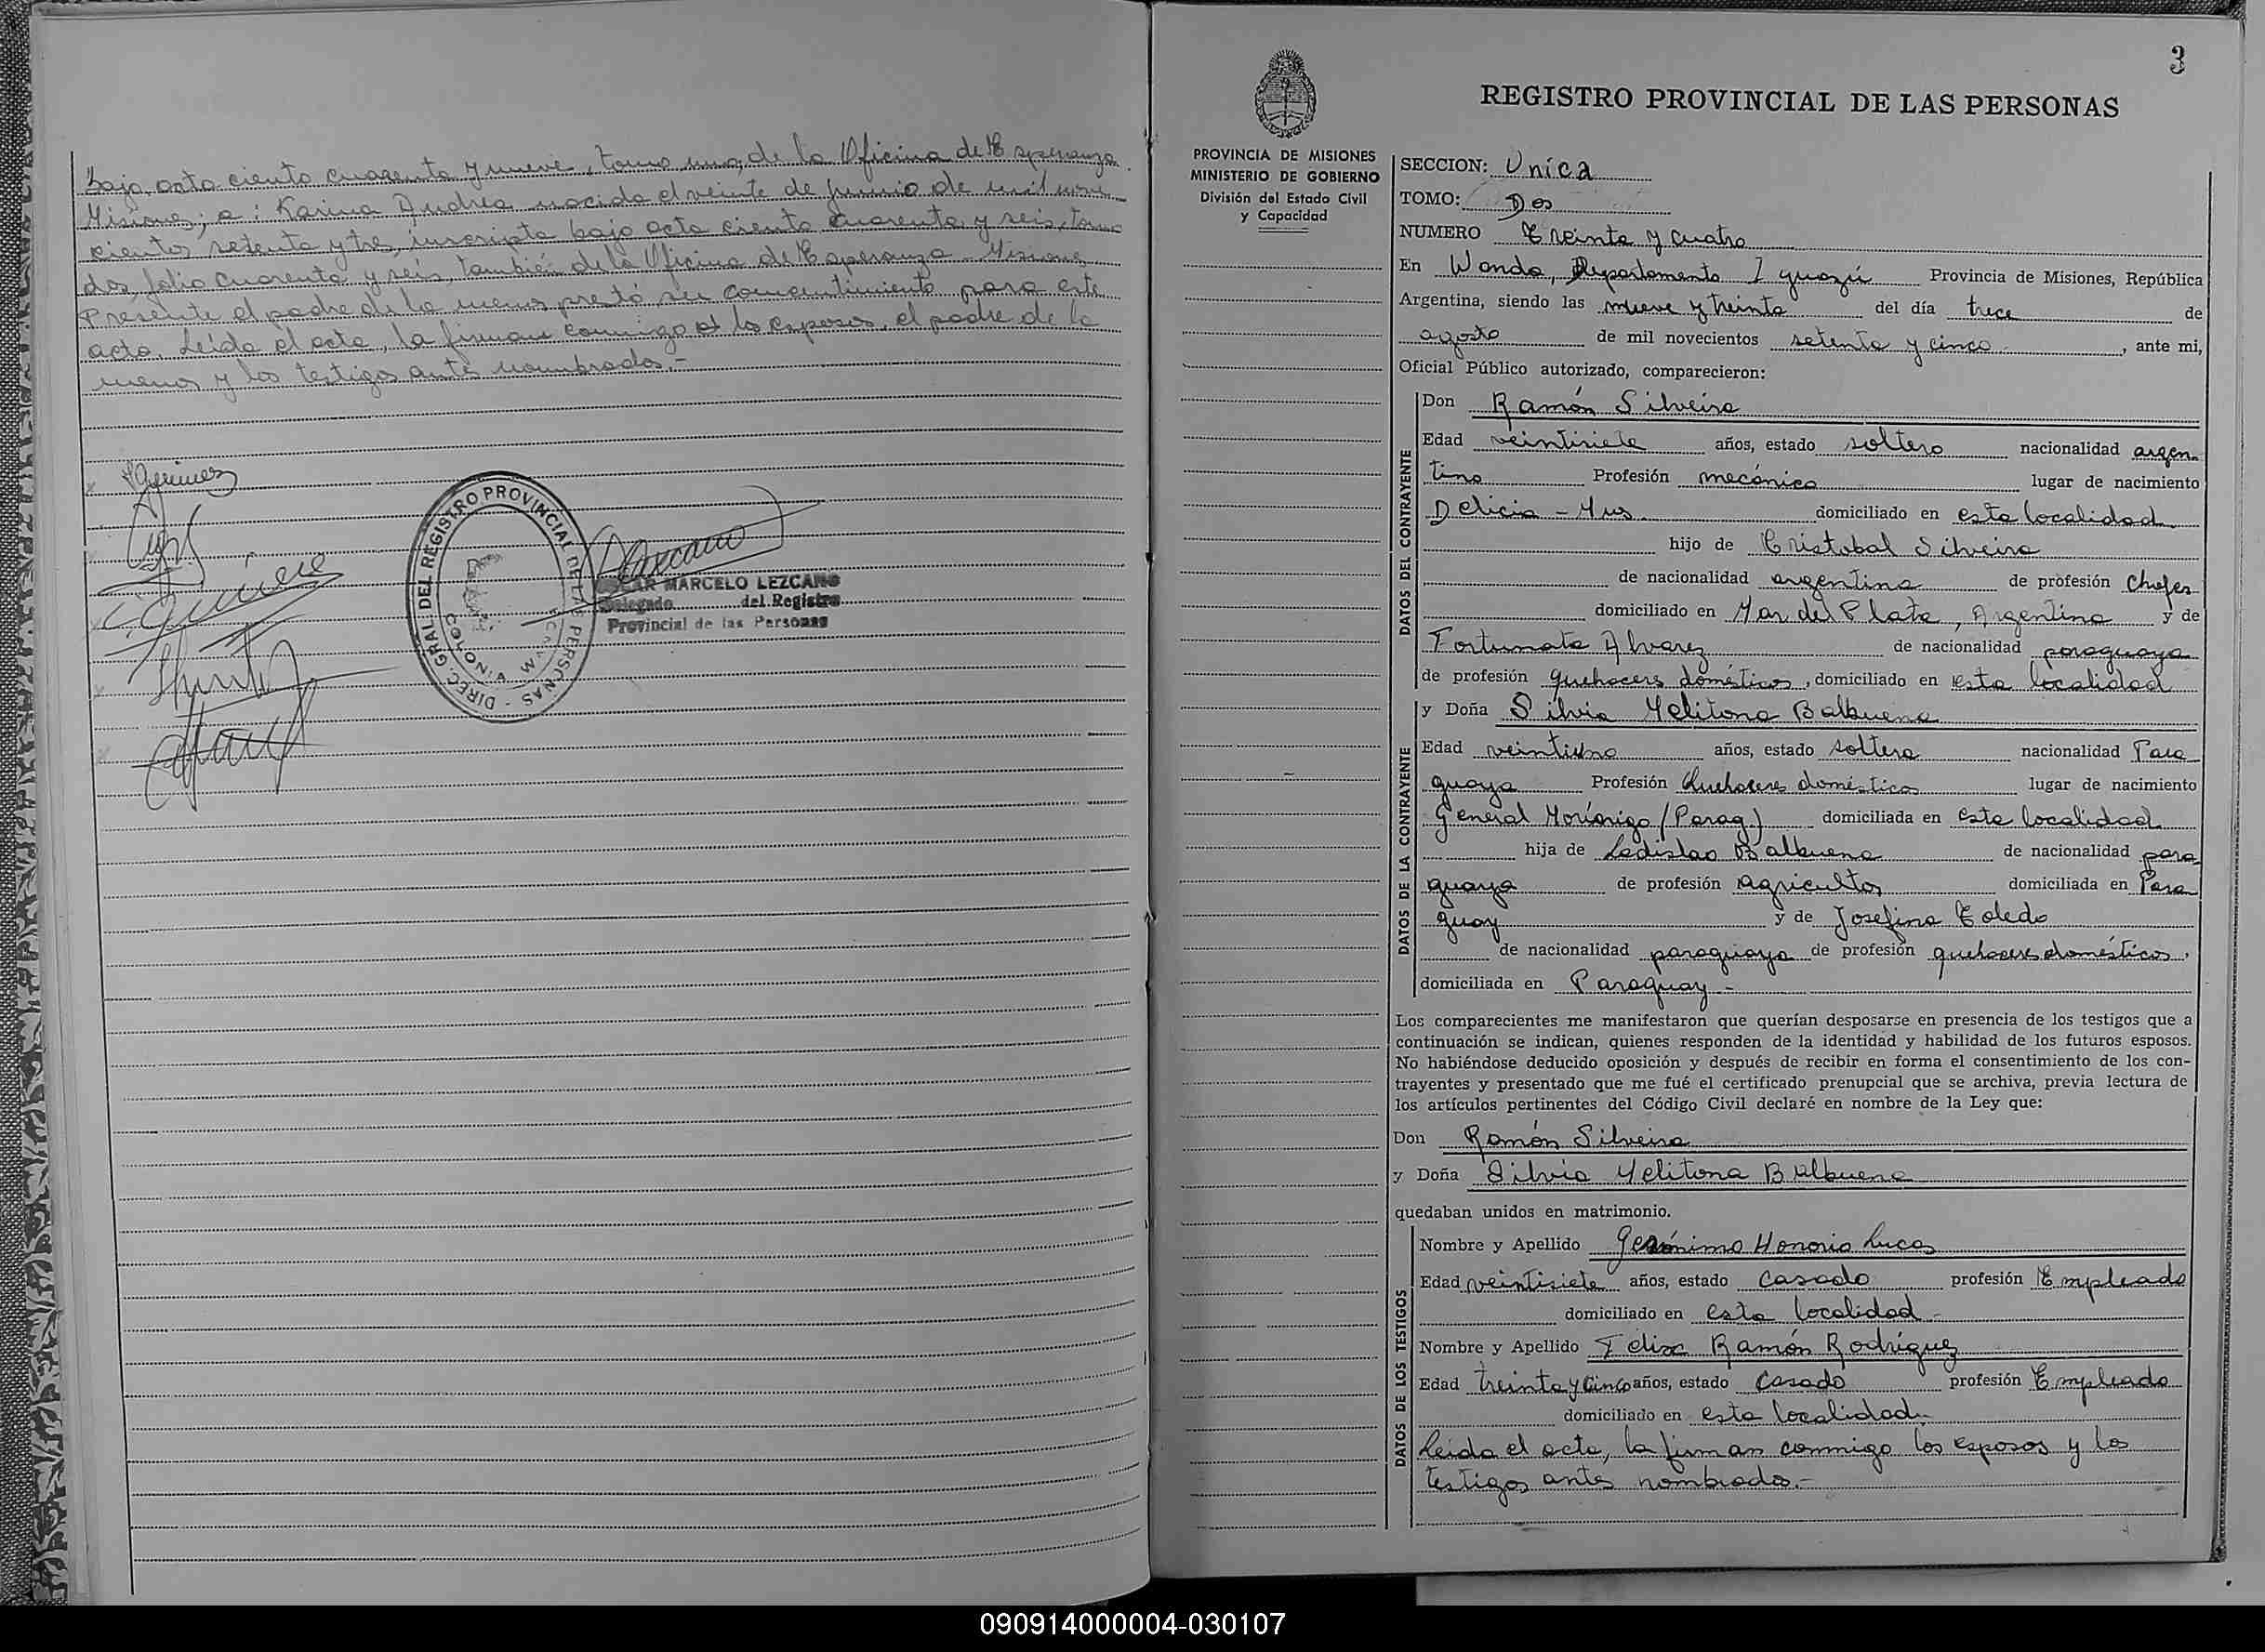 bajo acta ciento cuarenta y nueve, tomo uno, de la Oficina de Esperanza
Misiones; a: Karina Andrea nacida el veinte de junio de mil nove
cientos setenta y tres, inscripta bajo acta ciento cuarenta y seis, tomo
dos, folio cuarenta y seis, también de la Oficina de Esperanza Misiones
Presente el padre de la menor prestó su consentimiento para este
acto. Leída el acta, la firman conmigo los esposos, el padre de la
menor y los testigos antes nombrados.-
DIREC. GRAL. DEL REGISTRO PROVINCIAL DE LAS PERSONAS
MARCELO LEZCANO
Delegado del Registro
Provincial de las Personas
3
REGISTRO PROVINCIAL DE LAS PERSONAS
PROVINCIA DE MISIONES
MINISTERIO DE GOBIERNO
División del Estado Civil
y Capacidad
SECCION: Unica
TOMO: Dos
NUMERO Treinta y cuatro
En Wanda, Departamento Iguazú Provincia de Misiones, República
Argentina, siendo las nueve y treinta del día trece de
agosto de mil novecientos setenta y cinco, ante mi,
Oficial Público autorizado, comparecieron:
DATOS DEL CONTRAYENTE
Don Ramón Silveira
Edad veintisiete años, estado soltero nacionalidad argen-
tina Profesión mecánico lugar de nacimiento
Delicia - Mns domiciliado en esta localidad
hijo de Cristobal Silveira
de nacionalidad argentina de profesión Chofer
domiciliado en Mar del Plata, Argentina y de
Fortunata Alvarez de nacionalidad paraguaya
de profesión quehaceres domésticos, domiciliado en esta localidad
DATOS DE LA CONTRAYENTE
y Doña Silvia Melitona Balbuena
Edad veintiuno años, estado soltera nacionalidad Para
guaya Profesión Quehaceres domésticos lugar de nacimiento
General Morínigo (Parag) domiciliada en esta localidad
hija de Ladislao Balbuena de nacionalidad para
guaya de profesión agricultor domiciliada en Para
guay y de Josefina Toledo
de nacionalidad paraguaya de profesión quehaceres domésticos,
domiciliada en Paraguay -
Los comparecientes me manifestaron que querían desposarse en presencia de los testigos que a
continuación se indican, quienes responden de la identidad y habilidad de los futuros esposos.
No habiéndose deducido oposición y después de recibir en forma el consentimiento de los con-
trayentes y presentado que me fué el certificado prenupcial que se archiva, previa lectura de
los artículos pertinentes del Código Civil declaré en nombre de la Ley que:
Don Ramón Silveira
y Doña Silvia Melitona Balbuena
quedaban unidos en matrimonio.
DATOS DE LOS TESTIGOS
Nombre y Apellido Gerónimo Honorio Lucas
Edad veintisiete años, estado Casado profesión Empleado
domiciliado en esta localidad -
Nombre y Apellido Felix Ramón Rodríguez
Edad treinta y cinco años, estado Casado profesión Empleado
domiciliado en esta localidad.
Leída el acta, la firman conmigo los esposos y los
testigos antes nombrados.-
090914000004-030107